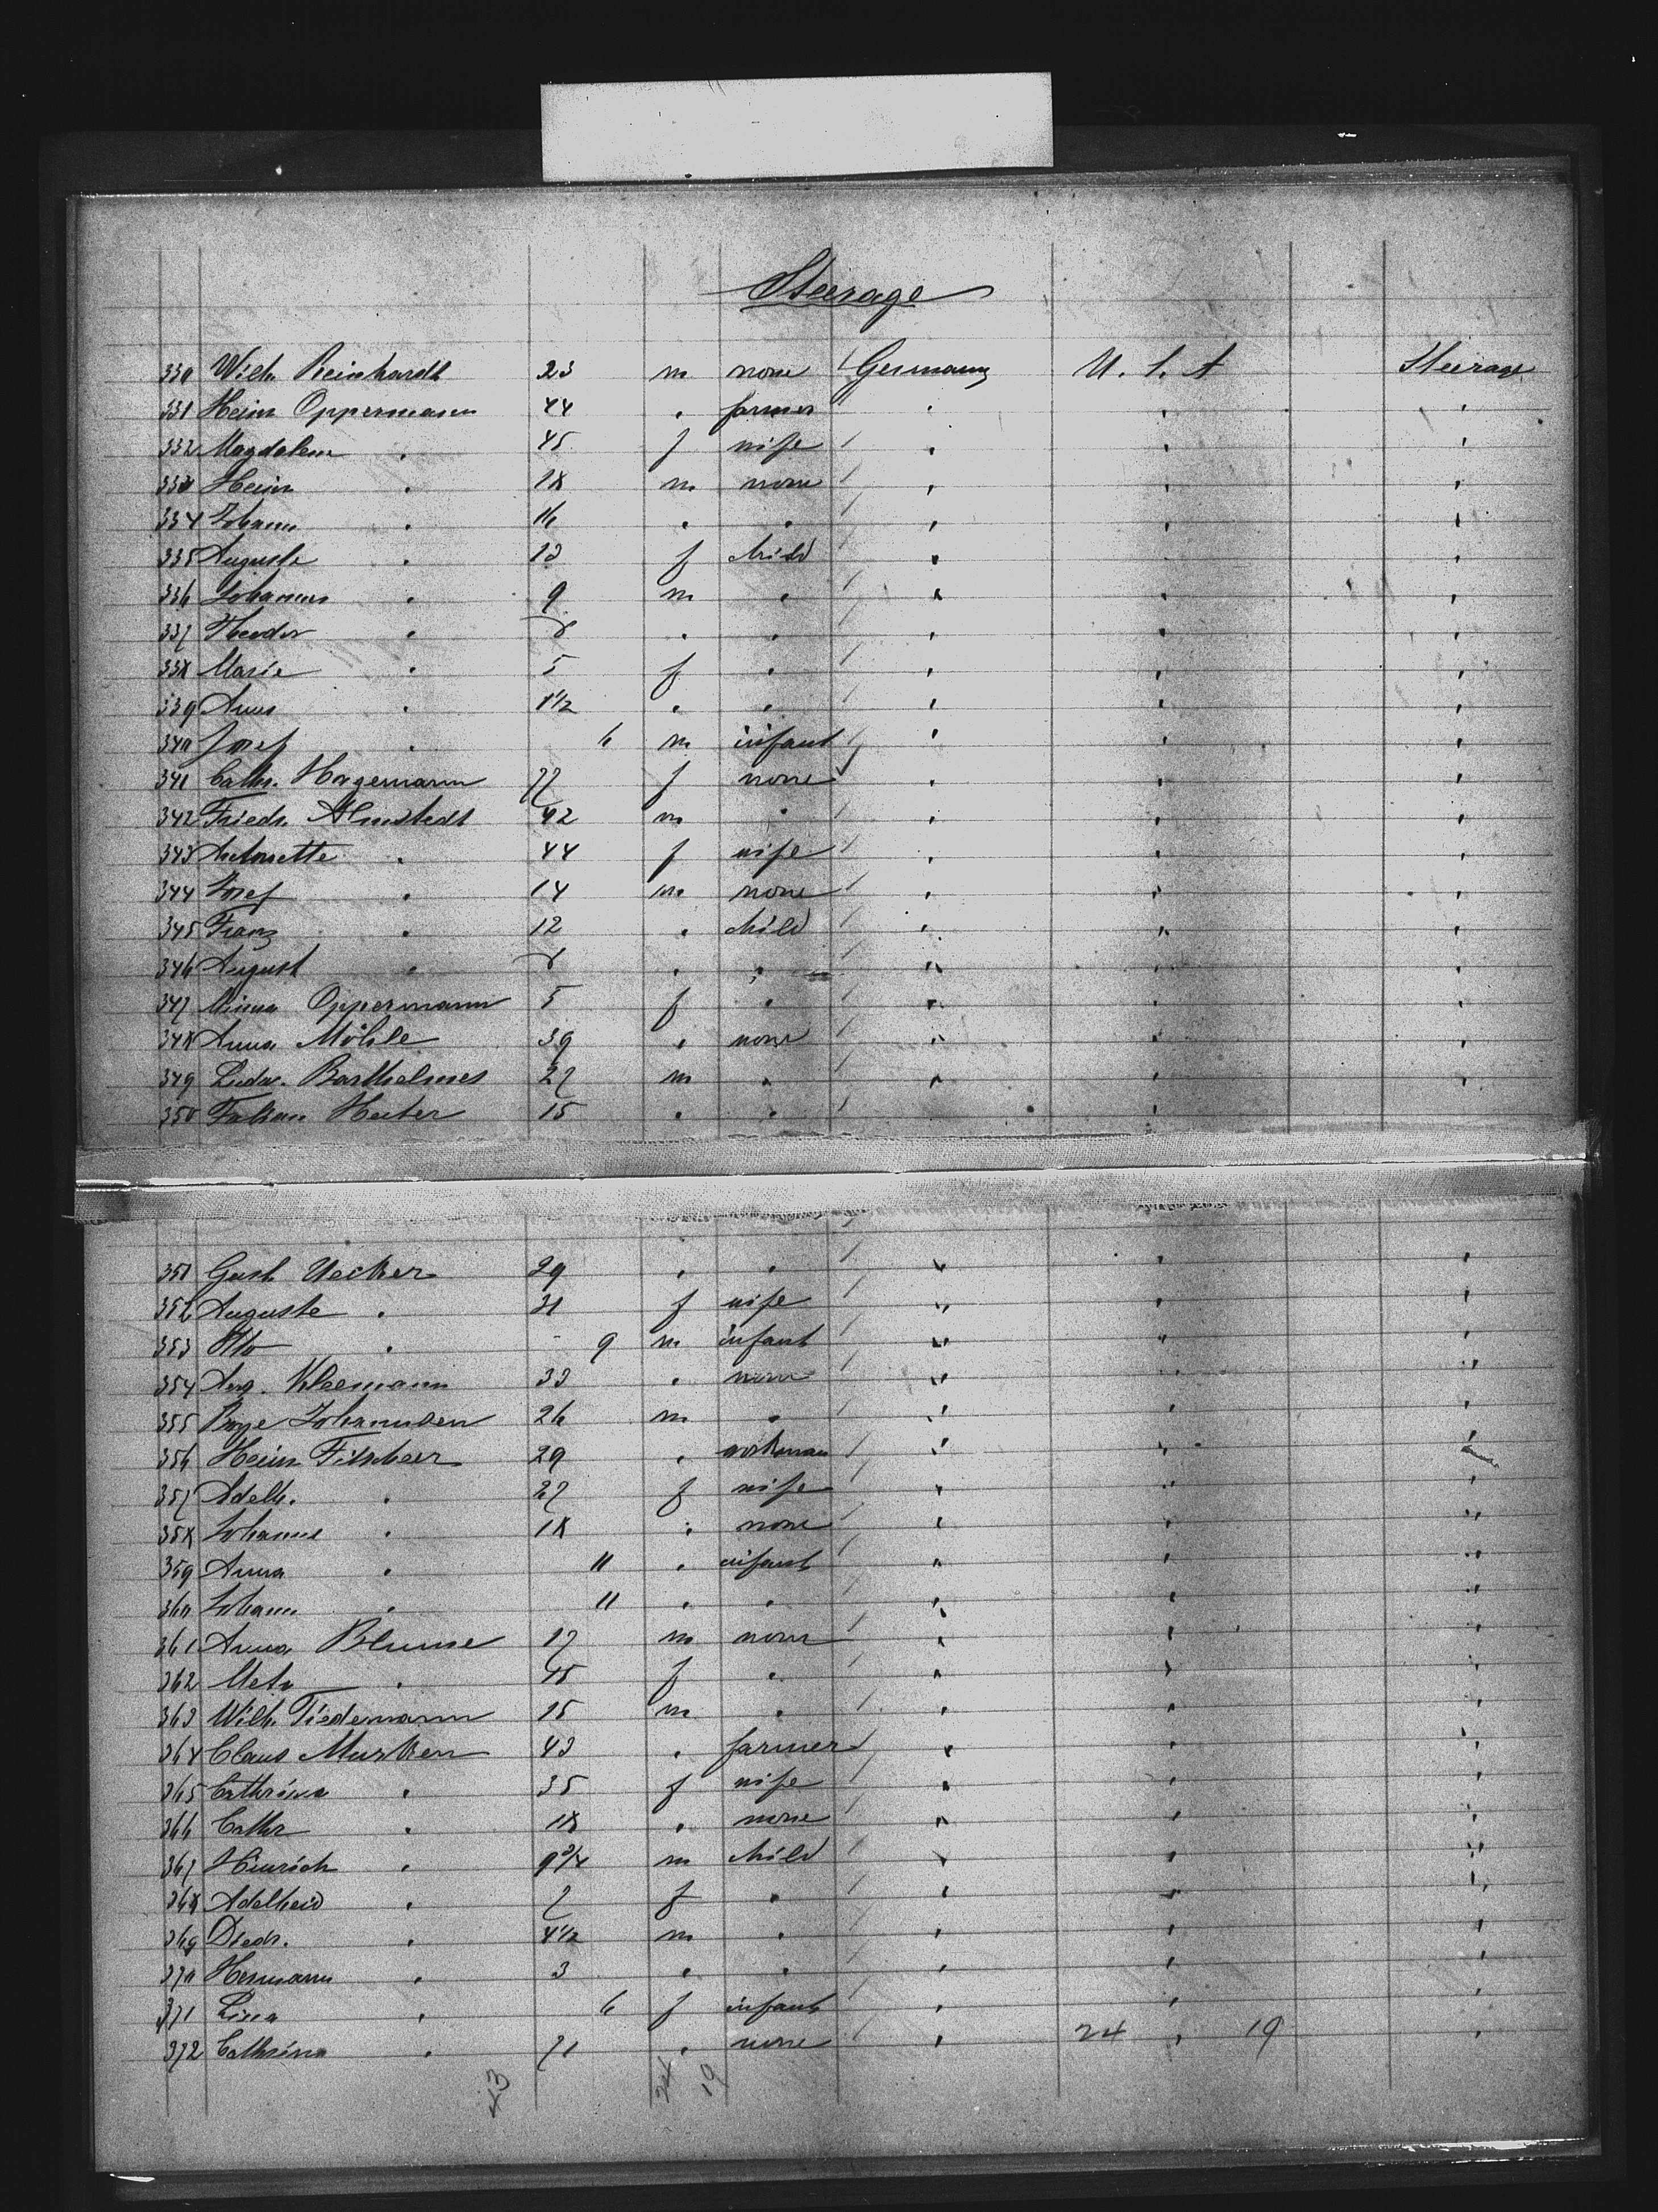 Steerage
330 Wilh. Reinhardt 23 m none Germany U. S. A Steerage
331 Heinr Oppermann 44 " farmer " " "
332 Magdalene " 45 f wife " " "
333 Heinr " 18 m none " " "
334 Johann " 16 " " " " "
335 Auguste " 13 f child " " "
336 Johannes " 9 m " " " "
337 Theodor " 8 " " " " "
338 Marie " 5 f " " " "
339 Anna " 1 1/2 " " " " "
340 Josef " 6 m infant " " "
341 Cathr. Hagemann 77 f none " " "
342 Friedr. Almstedt 42 m " " " "
343 Antonette " 44 f wife " " "
344 Josef " 14 m none " " "
345 Franz " 12 " child " " "
346 August " 8 " " " " "
347 Minna Oppermann 5 f " " " "
348 Anna Möhle 39 " none " " "
349 Ludw. Barthelmes 27 m " " " "
350 Fabian Heuter 15 " " " "
351 Gust Uecker 29 " " " " "
352 Auguste " 31 f wife " " "
353 Otto " 9 m infant " " "
354 Aug. Kleemann 33 " none " " "
355 Boye Johannsen 26 m " " " "
356 Heinr Fitscher 29 " workman " " "
357 Adelh. " 27 f wife " " "
358 Johanne " 18 " none " " "
359 Anna " 11 " infant " " "
360 Johann " 11 " " " " "
361 Anna Blume 17 m none " " "
362 Meta " 45 f " " " "
363 Wilh. Tiedemann 15 m " " " "
364 Claus Murken 43 " farmer " " "
365 Cathrina " 35 f wife " " "
366 Cathr " 18 " none " " "
367 Hinrich " 9 3/4 m child " " "
368 Adelheid " 7 f " " " "
369 Diedr. " 4 1/2 m " " " "
370 Hermann " 3 " " " " "
371 Lina " 6 f infant " " "
372 Cathrina " 71 " none " 24 " 19 "
43 24 19